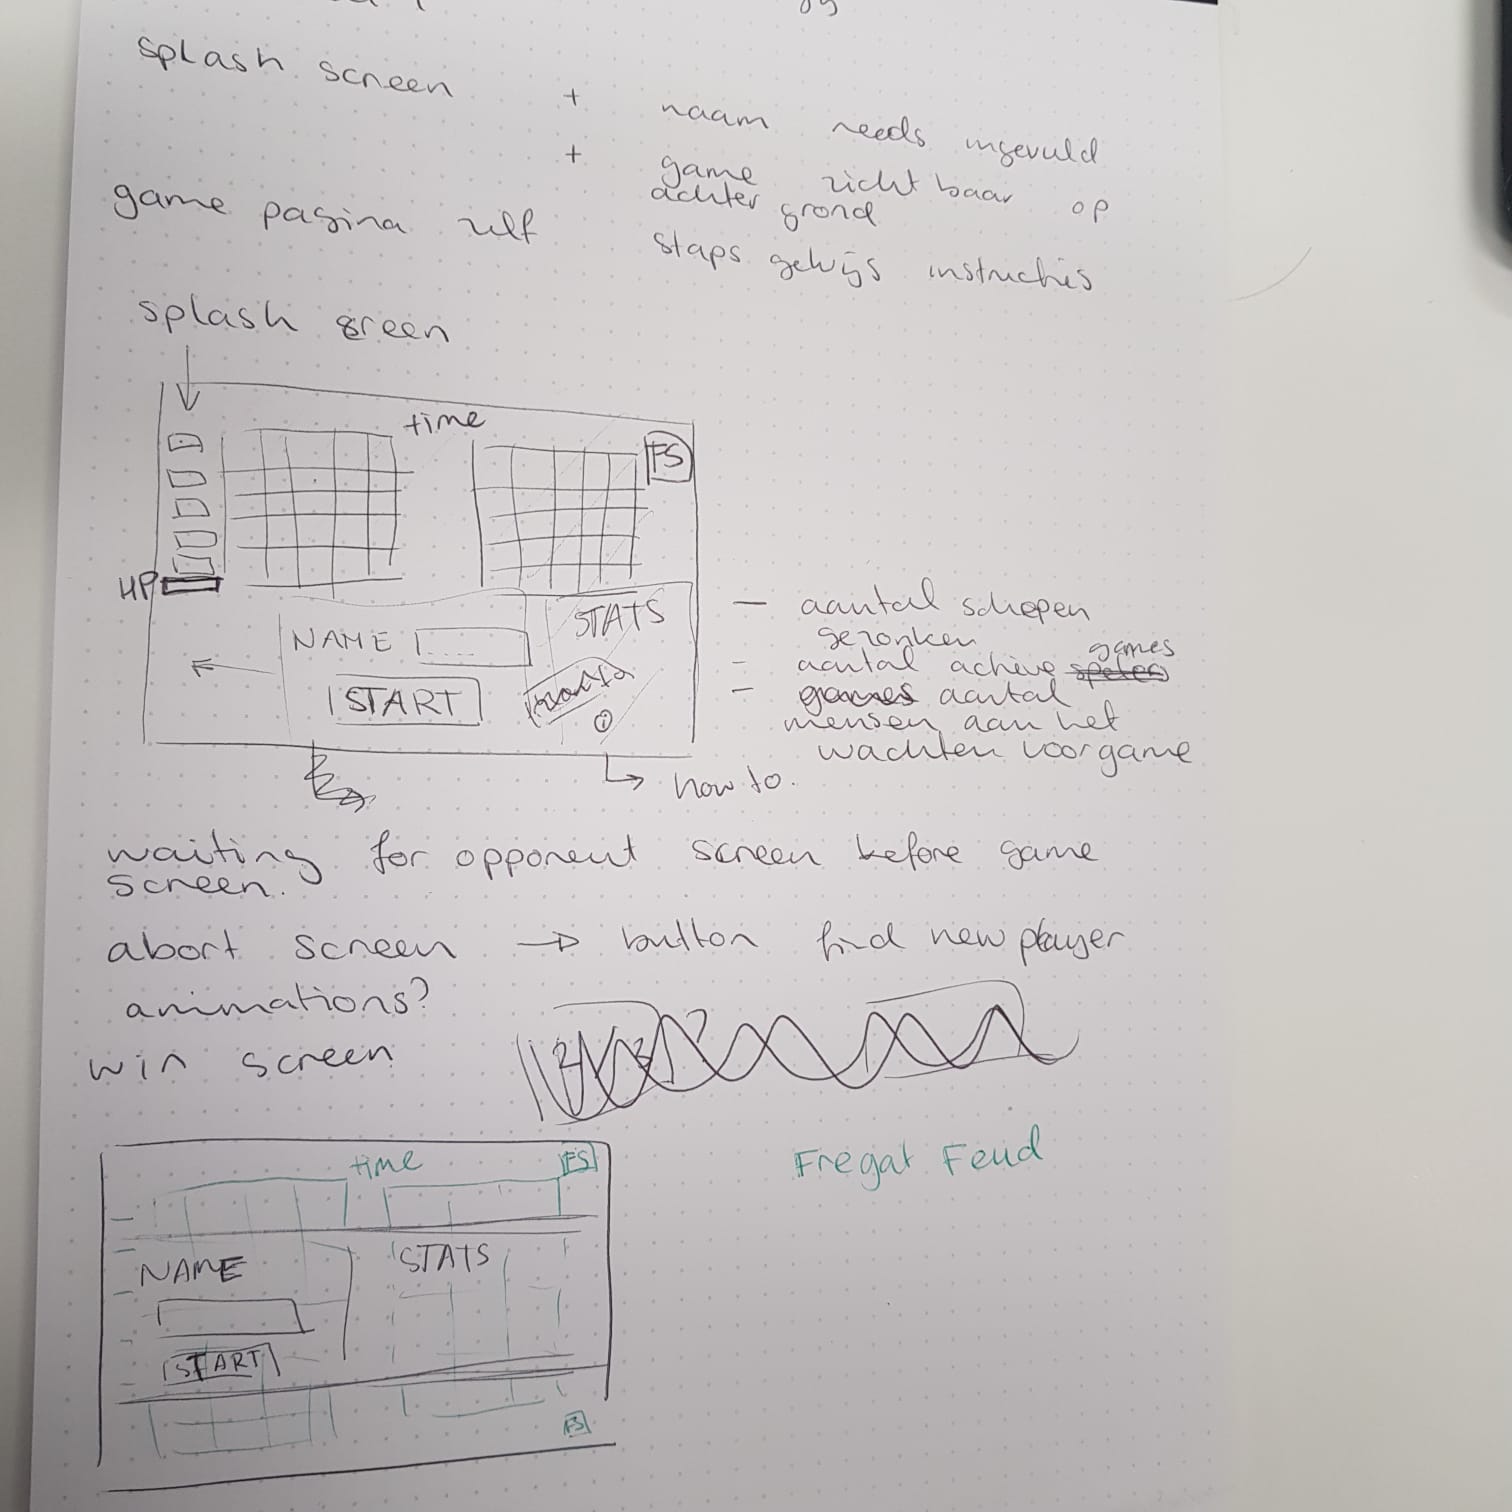 splash screen
+ naam needs ingevuld
+ game zichtbaar op
achter grond
game pagina zelf
staps gewijs instructies
splash screen
time
FS
HP
NAME
STATS
START
i
— aantal schepen
gezonken
games
- aantal actieve spelers
- games aantal
mensen aan het
wachten voor game
how to.
waiting for opponent screen before game
screen.
abort screen → button find new player
animations?
win screen
Fregat Feud
time
FS
NAME
STATS
START
FS